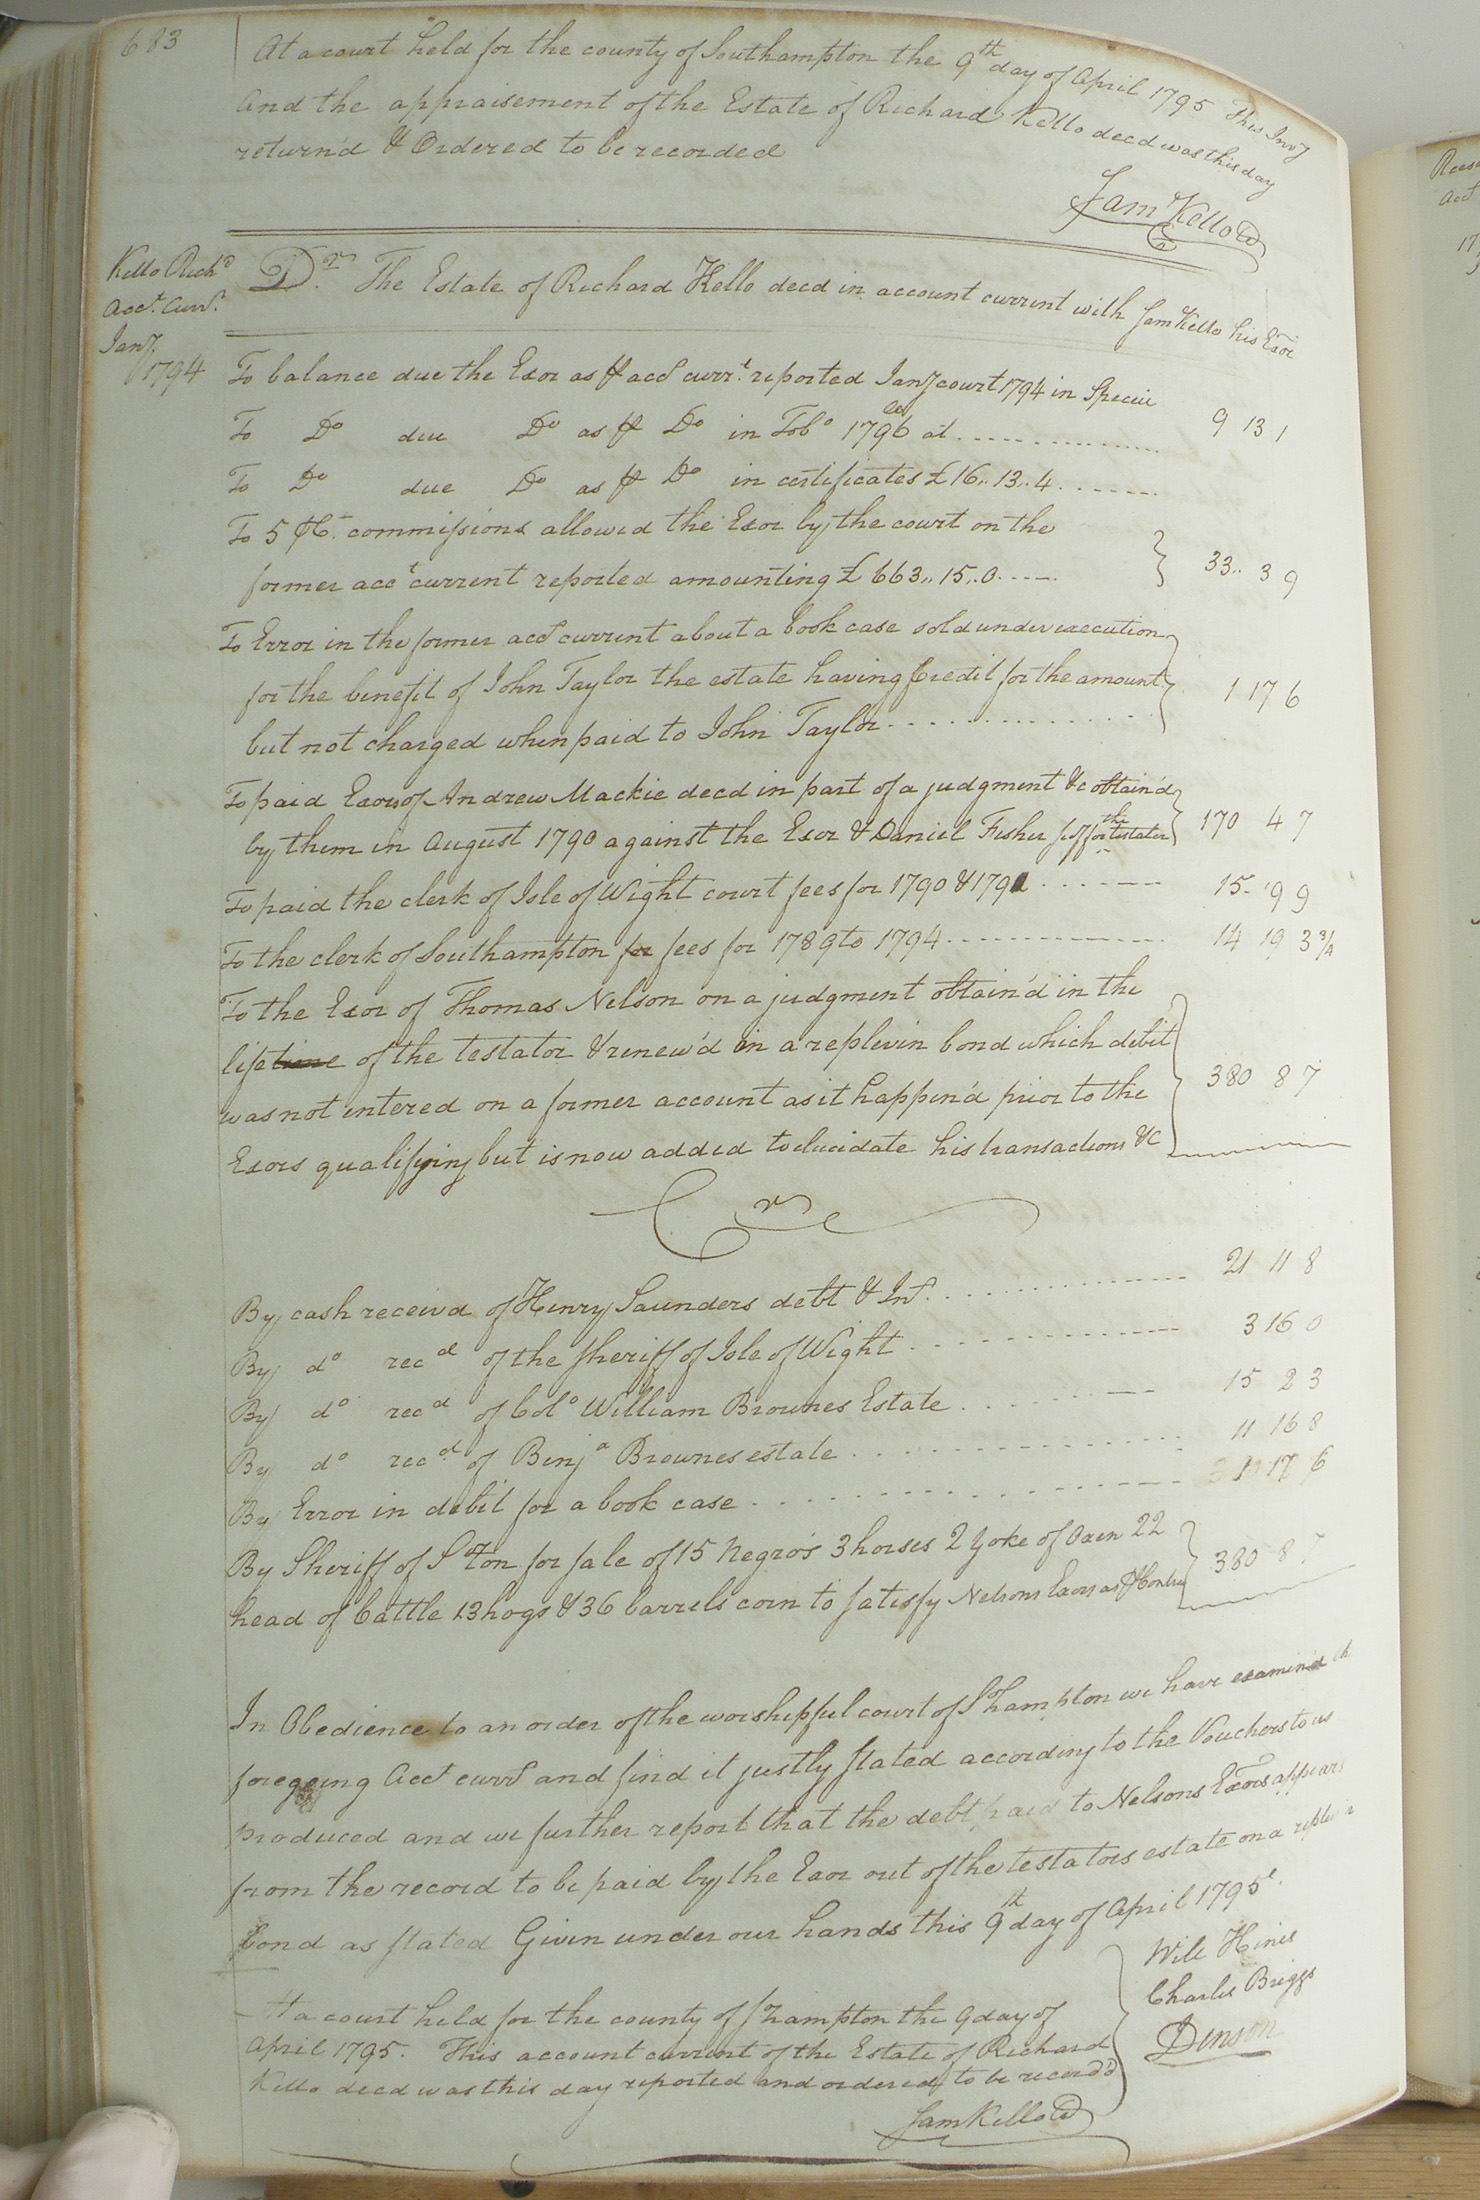 683
At a court held for the county of Southampton the 9th day of April 1795 This Invy
And the appraisement of the Estate of Richard Kello decd was this day
return'd & Ordered to be recorded
Sam Kello
Kello Richd
Acct. Curr.t
Jany.
1794
Dr. The Estate of Richard Kello decd in account current with Sam Kello his Exor
To balance due the Exor as ⅌ acct currt. reported Jany court 1794 in Specie 9 13 1
To Do due Do as ⅌ Do in Tobo 1796 at
To Do due Do as ⅌ Do in certificates £16..13..4
To 5 ⅌Ct. commissions allowed the Exor by the court on the
former acct current reported amounting £663..15..0 33.. 3 9
To Error in the former acct current about a book case sold under execution
for the benefit of John Taylor the estate having Credit for the amount 1 17 6
but not charged when paid to John Taylor
To paid Exors of Andrew Mackie decd in part of a judgment &c obtain'd
by them in August 1790 against the Exor & Daniel Fisher for the testator 170 4 7
To paid the clerk of Isle of Wight court fees for 1790 & 1791 15 9 9
To the clerk of Southampton for fees for 1789 to 1794 14 19 3¾
To the Exor of Thomas Nelson on a judgment obtain'd in the
lifetime of the testator & renew'd in a replevin bond which debit
was not entered on a former account as it happen'd prior to the 380 8 7
Exors qualifying but is now added to elucidate his transactions &c
Cr
By cash receivd of Henry Saunders debt & Int. 21 11 8
By do recd of the Sheriff of Isle of Wight 3 16 0
By do recd of Colo William Brownes Estate 15 2 3
By do recd. of Benja Brownes estate 11 16 8
By Error in debit for a book case 17 6
By Sheriff of S'ton for sale of 15 Negro's 3 horses 2 Yoke of Oxen 22
head of Cattle 13 hogs & 36 barrels corn to satisfy Nelsons Exors as ⅌ Contra 380 8 7
In Obedience to an order of the worshipful court of Sohampton we have examin'd th
foregoing Acct currt and find it justly stated according to the Vouchers to us
produced and we further report that the debt paid to Nelsons Exors appears
from the record to be paid by the Exor out of the testators estate on a replevin
bond as stated Given under our hands this 9th day of April 1795.
Will Hines
Charles Briggs
Denson
At a court held for the county of Sohampton the 9 day of
April 1795. This account current of the Estate of Richard
Kello decd was this day reported and ordered to be record'd
Sam Kello